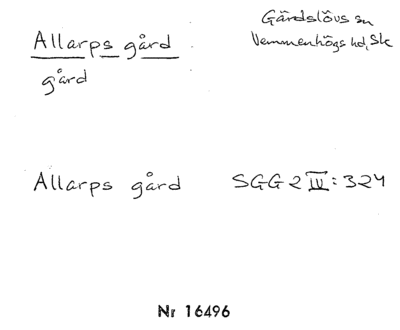 Allarps gård
gård
Gärdslövs sn
Vemmenhögs hd, Sk
Allarps gård SGG 2 IV: 324
Nr 16496